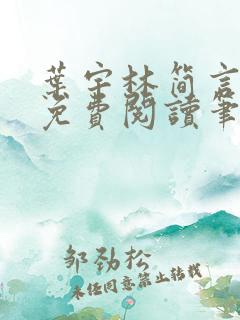 葉宇林简言
免費閱讀筆
邹劲松
未经同意禁止转载